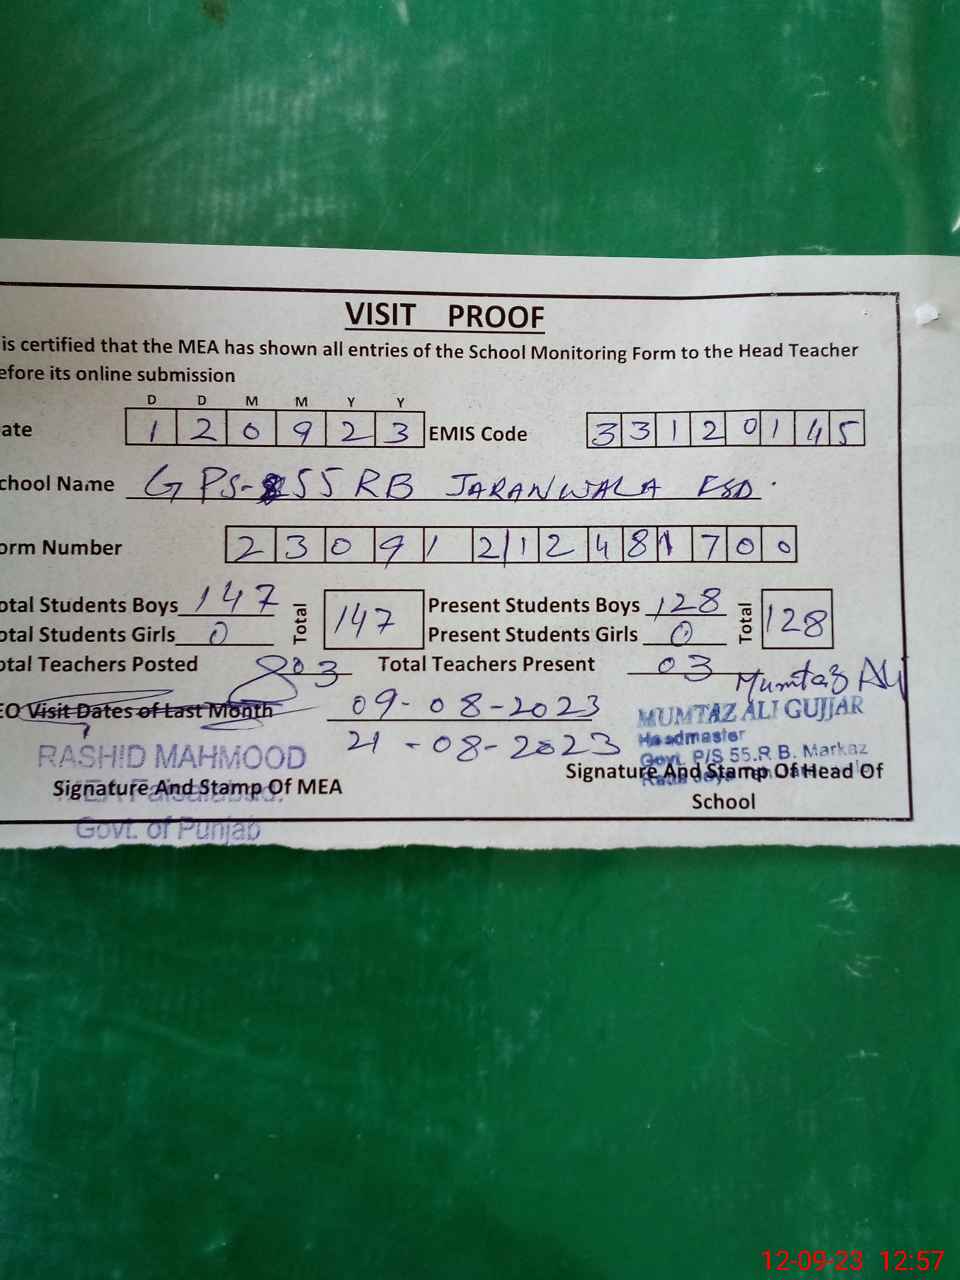 VISIT PROOF
is certified that the MEA has shown all entries of the School Monitoring Form to the Head Teacher
efore its online submission
D D M M Y Y
ate 1 2 0 9 2 3 EMIS Code 3 3 1 2 0 1 4 5
chool Name GPS-55 RB JARANWALA FSD.
orm Number 2 3 0 9 1 2 1 2 4 8 1 7 0 0
otal Students Boys 147 Total 147 Present Students Boys 128 Total 128
otal Students Girls 0 Present Students Girls 0
otal Teachers Posted 03 Total Teachers Present 03
Mumtaz Ali
EO Visit Dates of Last Month 09-08-2023
MUMTAZ ALI GUJJAR
21-08-2023
Headmaster
RASHID MAHMOOD
Govt. P/S 55.R B. Markaz
Signature And Stamp Of MEA
Signature And Stamp Of Head Of
School
Govt. of Punjab
12-09-23 12:57